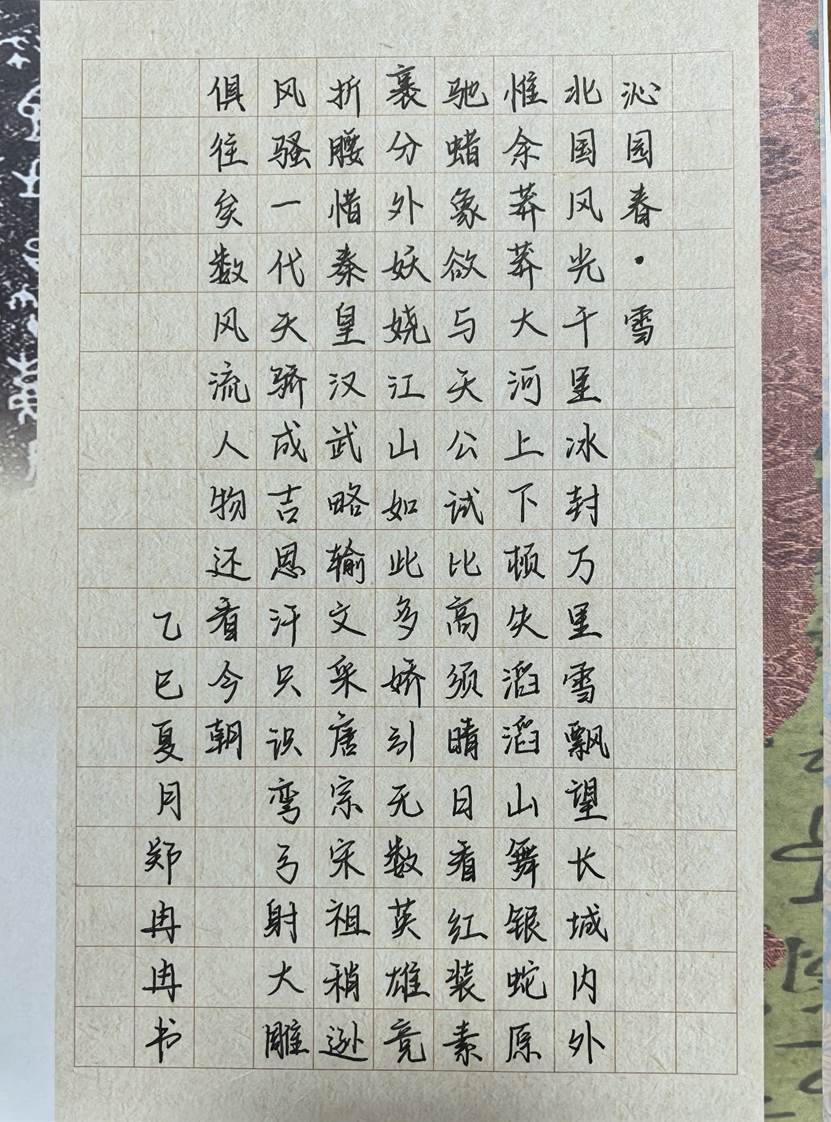 沁园春·雪
北国风光千里冰封万里雪飘望长城内外
惟余莽莽大河上下顿失滔滔山舞银蛇原
驰蜡象欲与天公试比高须晴日看红装素
裹分外妖娆江山如此多娇引无数英雄竞
折腰惜秦皇汉武略输文采唐宗宋祖稍逊
风骚一代天骄成吉思汗只识弯弓射大雕
俱往矣数风流人物还看今朝
乙巳夏月郑冉冉书